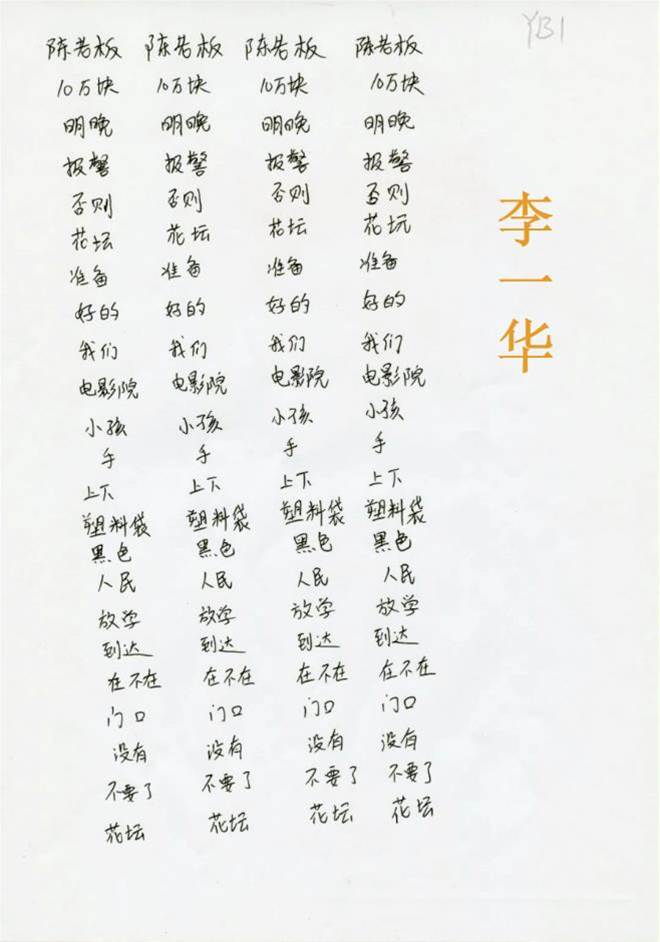 YB1
陈老板 陈老板 陈老板 陈老板
10万块 10万块 10万块 10万块
明晚 明晚 明晚 明晚
报警 报警 报警 报警
否则 否则 否则 否则
花坛 花坛 花坛 花坛
准备 准备 准备 准备
好的 好的 好的 好的
我们 我们 我们 我们
电影院 电影院 电影院 电影院
小孩 小孩 小孩 小孩
手 手 手 手
上下 上下 上下 上下
塑料袋 塑料袋 塑料袋 塑料袋
黑色 黑色 黑色 黑色
人民 人民 人民 人民
放学 放学 放学 放学
到达 到达 到达 到达
在不在 在不在 在不在 在不在
门口 门口 门口 门口
没有 没有 没有 没有
不要了 不要了 不要了 不要了
花坛 花坛 花坛 花坛
李一华